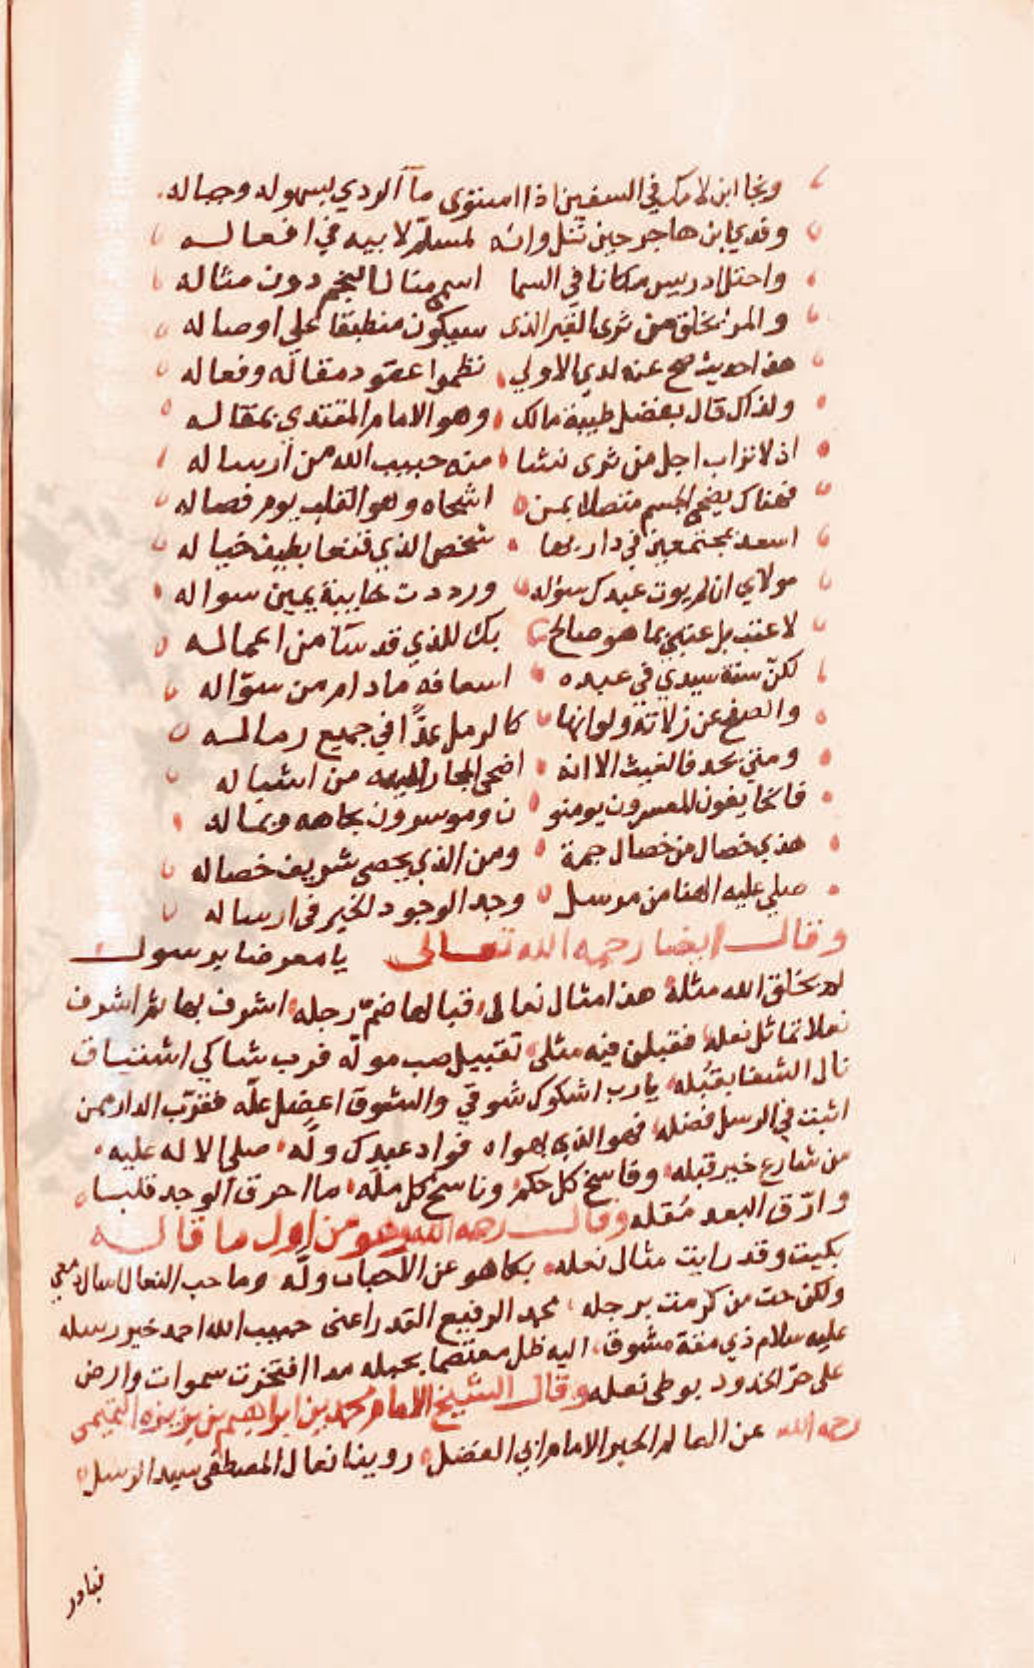 ونجا ابن لامك في السفين اذا استوى مآ الردي بسهوله وجباله
وفدي ابن هاجر حين تل وانه لمسلّم لابيه في افعاله
واحتل ادريس مكانا في السما اسمى منالا النجم دون مثاله
والمرء يخلق من ثرى القبر الذى سيكون منطبقا على اوصاله
هذا حديث صح عنه لدى الاولي نظموا عقود مقاله وفعاله
ولذاك قال بفضل طيبة مالك وهو الامام المقتدي بمقاله
اذ لا تراب اجل من ثرى نشا منه حبيب الله من ارساله
فهناك يضحى الجسم متصلا بمن اشجاه وهو القلب يوم فصاله
اسعد بمجتمعين في دار بها شخص الذي قنعا بطيف خياله
مولاي ان لم يوت عبدك سؤله ورددت خايبة يمين سواله
لا عتب بل عتبي بما هو صالح بك للذي قد سآ من اعماله
لكن سنة سيدي في عبده اسعافه مادام من سوّاله
والصفح عن زلاته ولو انها كالرمل عدًّا في جميع رماله
ومتى يجد فالغيث الا انه اضحى المجار اليه من اشباله
فاخايفون المعسرون يومنو ن وموسرون بجاهه وبماله
هذي خصال من خصال جمة ومن الذي يحصى شريف خصاله
صلي عليه الهنا من مرسل وجد الوجود الخير في ارساله
وقال ايضا رحمه الله تعالى يا معرضا برسول
لم يخلق الله مثله هذا مثال نعالى قبالها ضمّ رجله اشرف بها ثم اشرف
نعلا تماثل نعله فقبلن فيه مثلى تقبيل صب مولّه فرب شاكي اشتياق
نال الشفا بقُبله يارب اشكوك شوقي والشوق اعضل علّه فقرّب الدار ممن
اثبت في الرسل فضله فهو الذي يهواه فواد عبدك ولّه صلى الاله عليه
من شارع خير قبله وفاسخ كل حكم وناسخ كل ملّه ما احرق الوجد قلبا
وارّق البعد مُقله وقال رحمه الله وهو من اول ما قاله
بكيت وقد رايت مثال نعله بكاهو عن الاحباب ولّه وما حب النعال امال معي
ولكن حب من كرمت برجله محمد الرفيع القدر اعنى حبيب الله احمد خير رسله
عليه سلام ذي مقة مشوق اليه ظل معتصما بحبله مدا افتخرت سموات وارض
على حرّ الخدود بوطى نعله وقال الشيخ الامام محمد بن ابراهيم بن يزيزه التميمى
رحمه الله عن العالم الحبر الامام ابي الفضل روينا نعال المصطفى سيد الرسل
نبادر